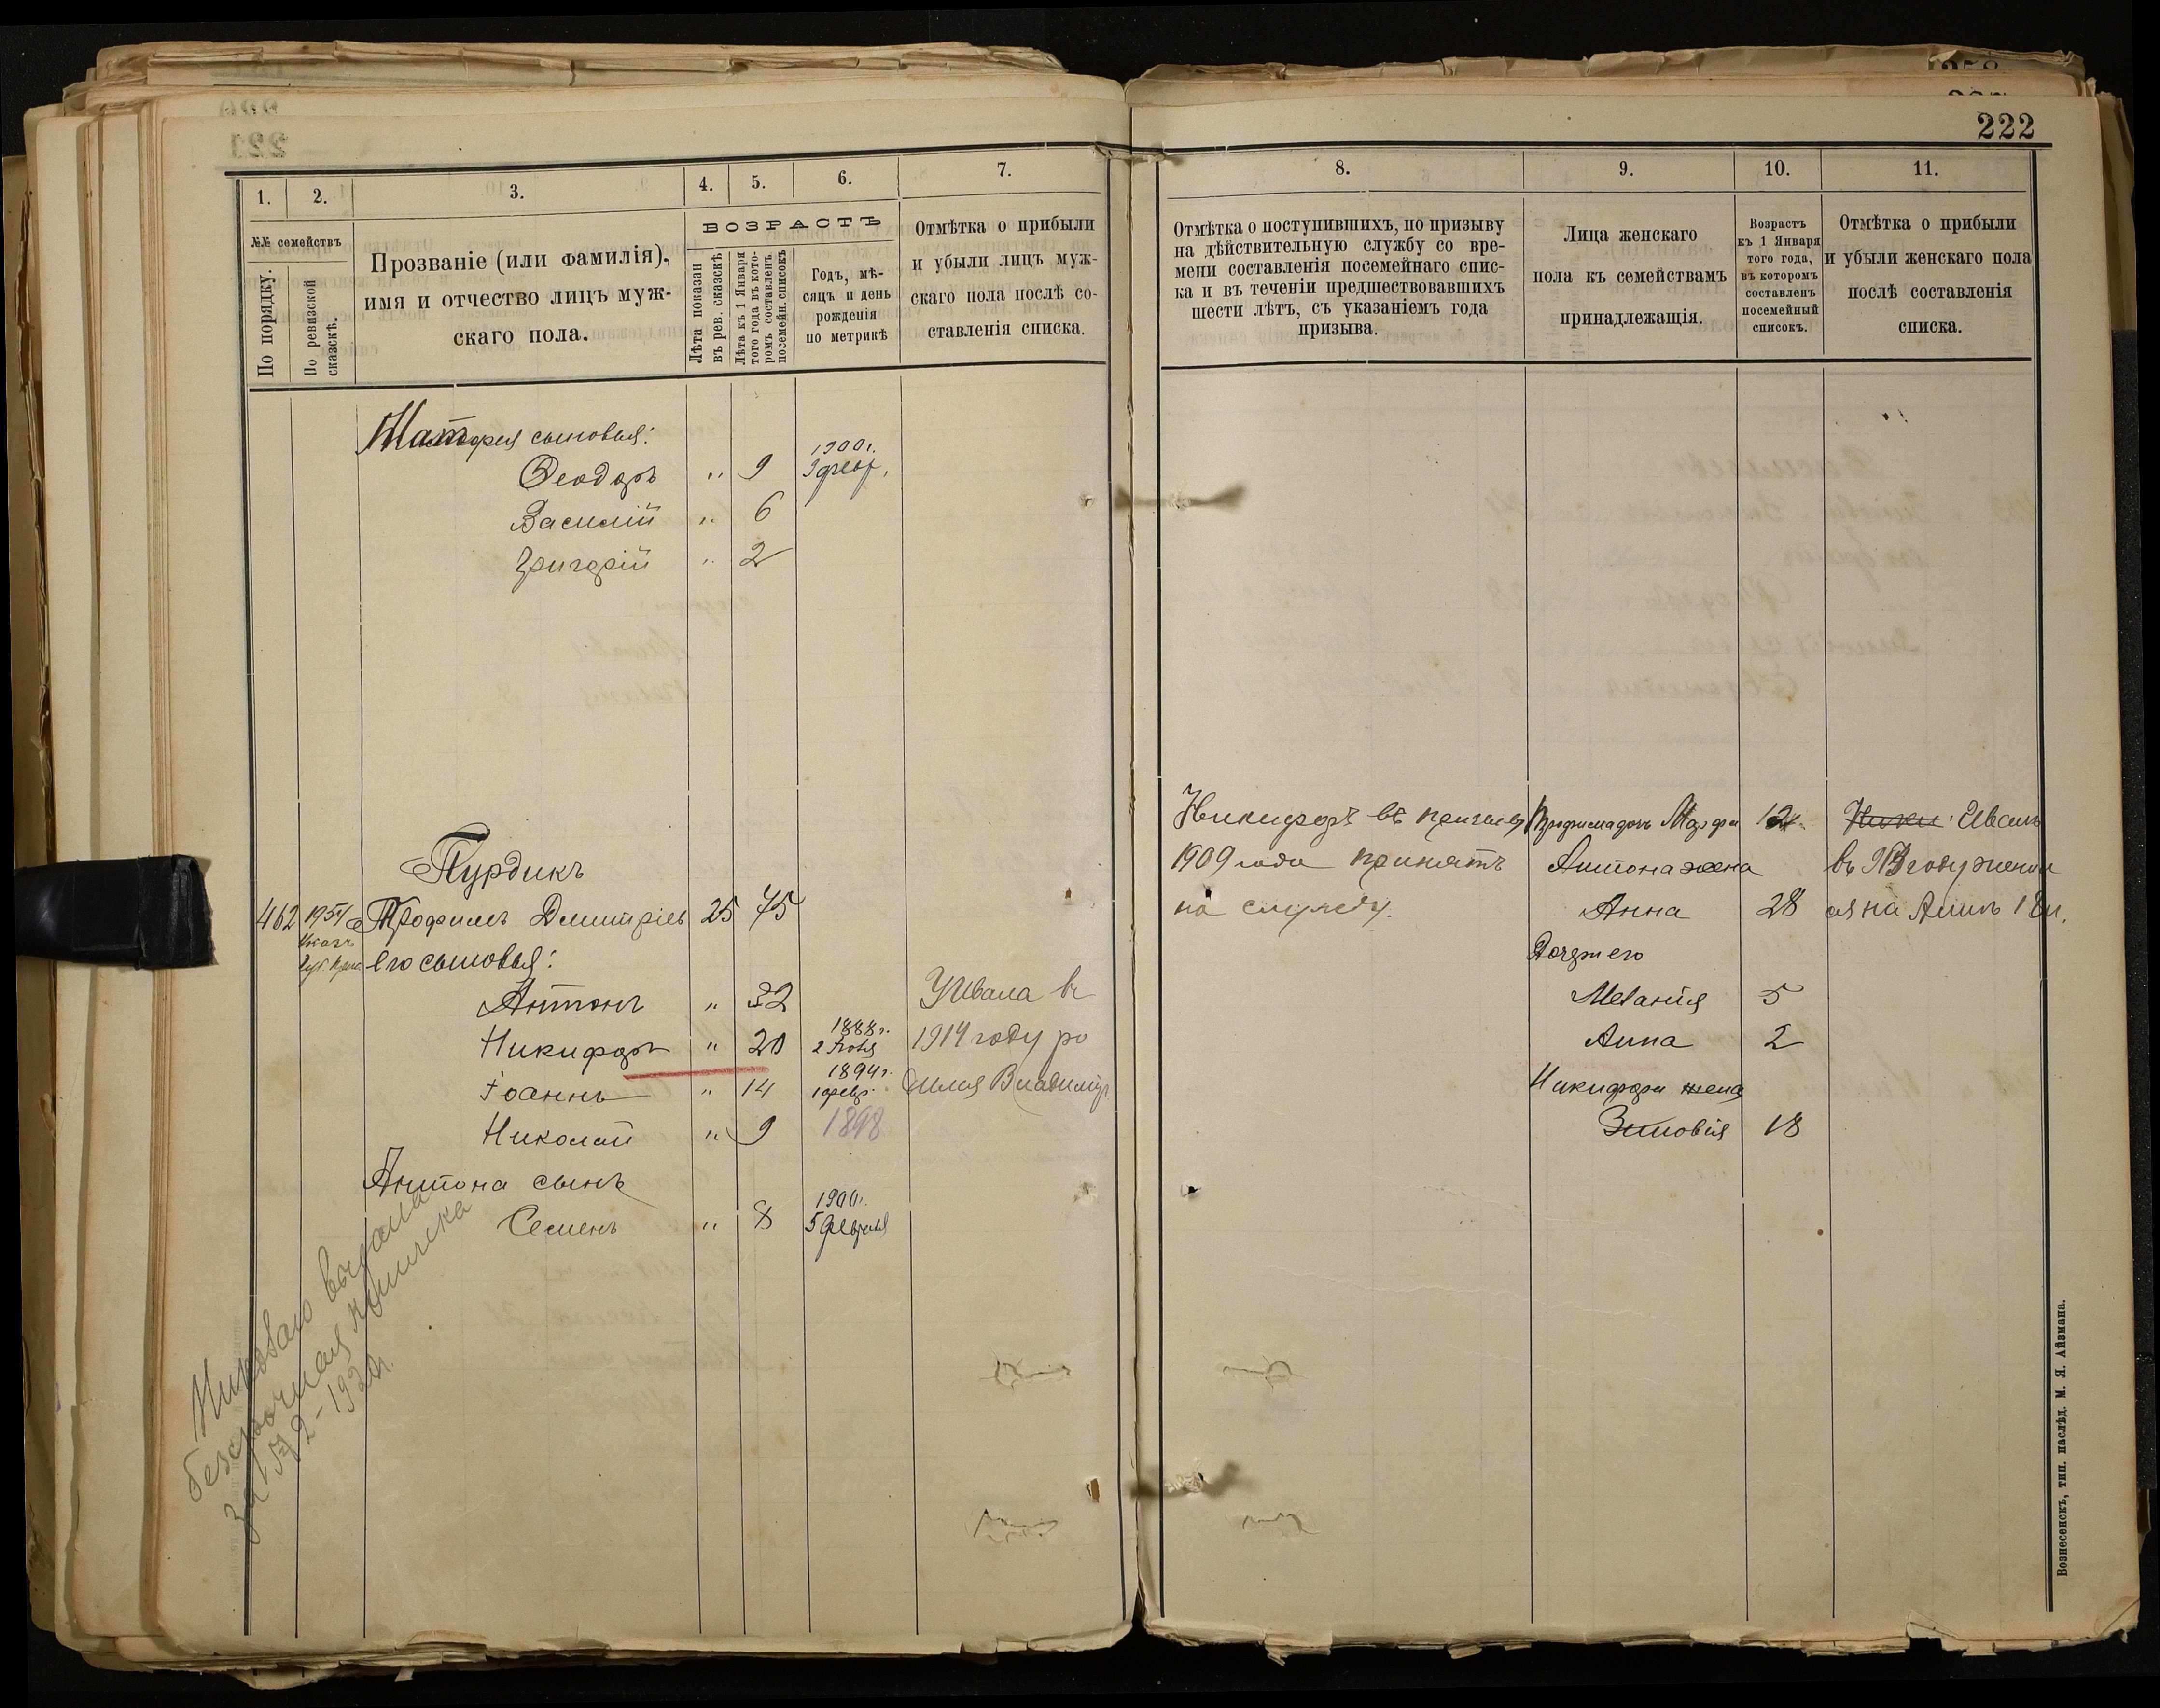 222
1.
2.
3.
4.
5.
6.
7.
№№ семействъ
По порядку.
По ревизской сказскѣ.
Прозваніе (или фамилія),
имя и отчество лицъ муж-
скаго пола.
ВОЗРАСТЪ
Лѣта показан
въ рев. сказскѣ
Лѣта къ 1 Января
того года въ кото-
ромъ составлен.
посемейн. списокъ
Годъ, мѣ-
сяцъ и день
рожденія
по метрикѣ
Отмѣтка о прибыли
и убыли лицъ муж-
скаго пола послѣ со-
ставленія списка.
сыновья:
Феодоръ " 9 1900 г.
Василій " 6
Григорій " 2
Пурдикъ
462 Трофимъ Дмитріевъ 25 75
его сыновья:
Антонъ " 32
Никифоръ " 20 1888 г.
Іоаннъ " 14 1894 г.
Николай " 9 1898
Антона сынъ
Семенъ " 8 1900 г.
5 Февраля
У Ивана въ
1914 году ро
дился Владимір
выдана
безсрочная книжка
8.
9.
10.
11.
Отмѣтка о поступившихъ, по призыву
на дѣйствительную службу со вре-
мени составленія посемейнаго спис-
ка и въ теченіи предшествовавшихъ
шести лѣтъ, съ указаніемъ года
призыва.
Лица женскаго
пола къ семействамъ
принадлежащія.
Возрастъ
къ 1 Января
того года,
въ которомъ
составленъ
посемейный
списокъ.
Отмѣтка о прибыли
и убыли женскаго пола
послѣ составленія
списка.
Никифоръ въ призывъ
1909 года принятъ
на службу.
Марфа
Антона жена
Анна 28
Дочери его
Меланія 5
Анна 2
Никифора жена
Зиновія 18
Иванъ
на Аннѣ
Вознесенскъ, тип. наслѣд. М. Я. Айзмана.